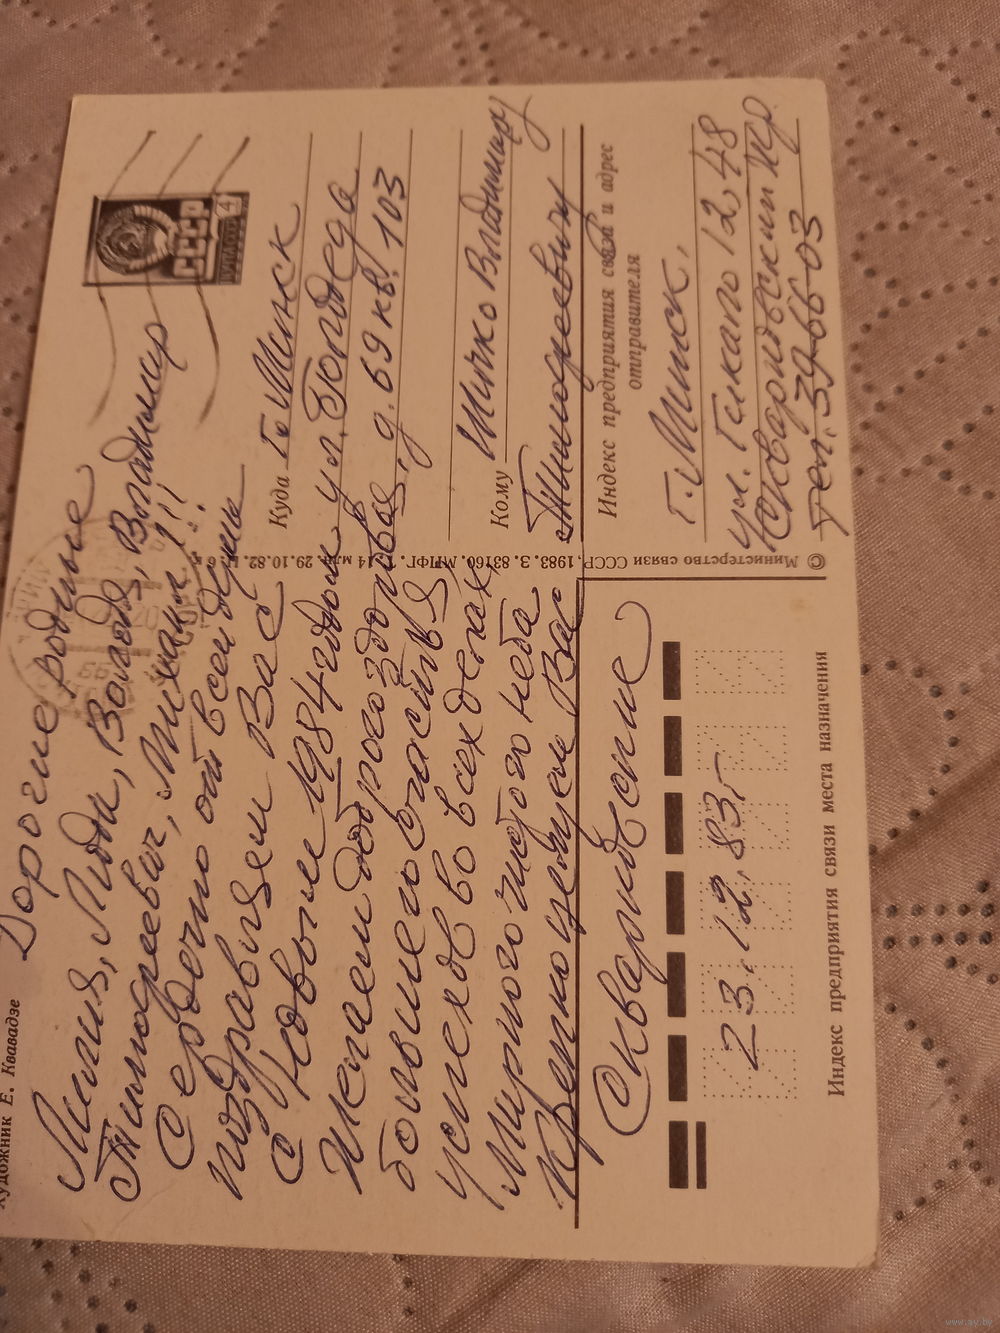 Художник Е. Квавадзе
Дорогие родные
Лилия, Люди, Володя, Владимир
Тимофеевич, Михаил!!!
Сердечно от всей души
поздравляем Вас
с Новым 1984 годом
Желаем доброго здоровья,
большего счастья
успехов во всех делах,
Мирного чистого неба
Крепко целуем Вас
Скваридские
23.12.83 г
СССР
ПОЧТА
4
Куда г. Минск
ул.
д. 69 кв. 103
Кому Мичко Владимиру
Тимофеевичу
Индекс предприятия связи и адрес
отправителя
г. Минск,
ул. Гикало 12, 48
тел. 39-66-03
© Министерство связи СССР, 1983. З. 83160. МПФГ. 29.10.82.
Индекс предприятия связи места назначения
www.ay.by